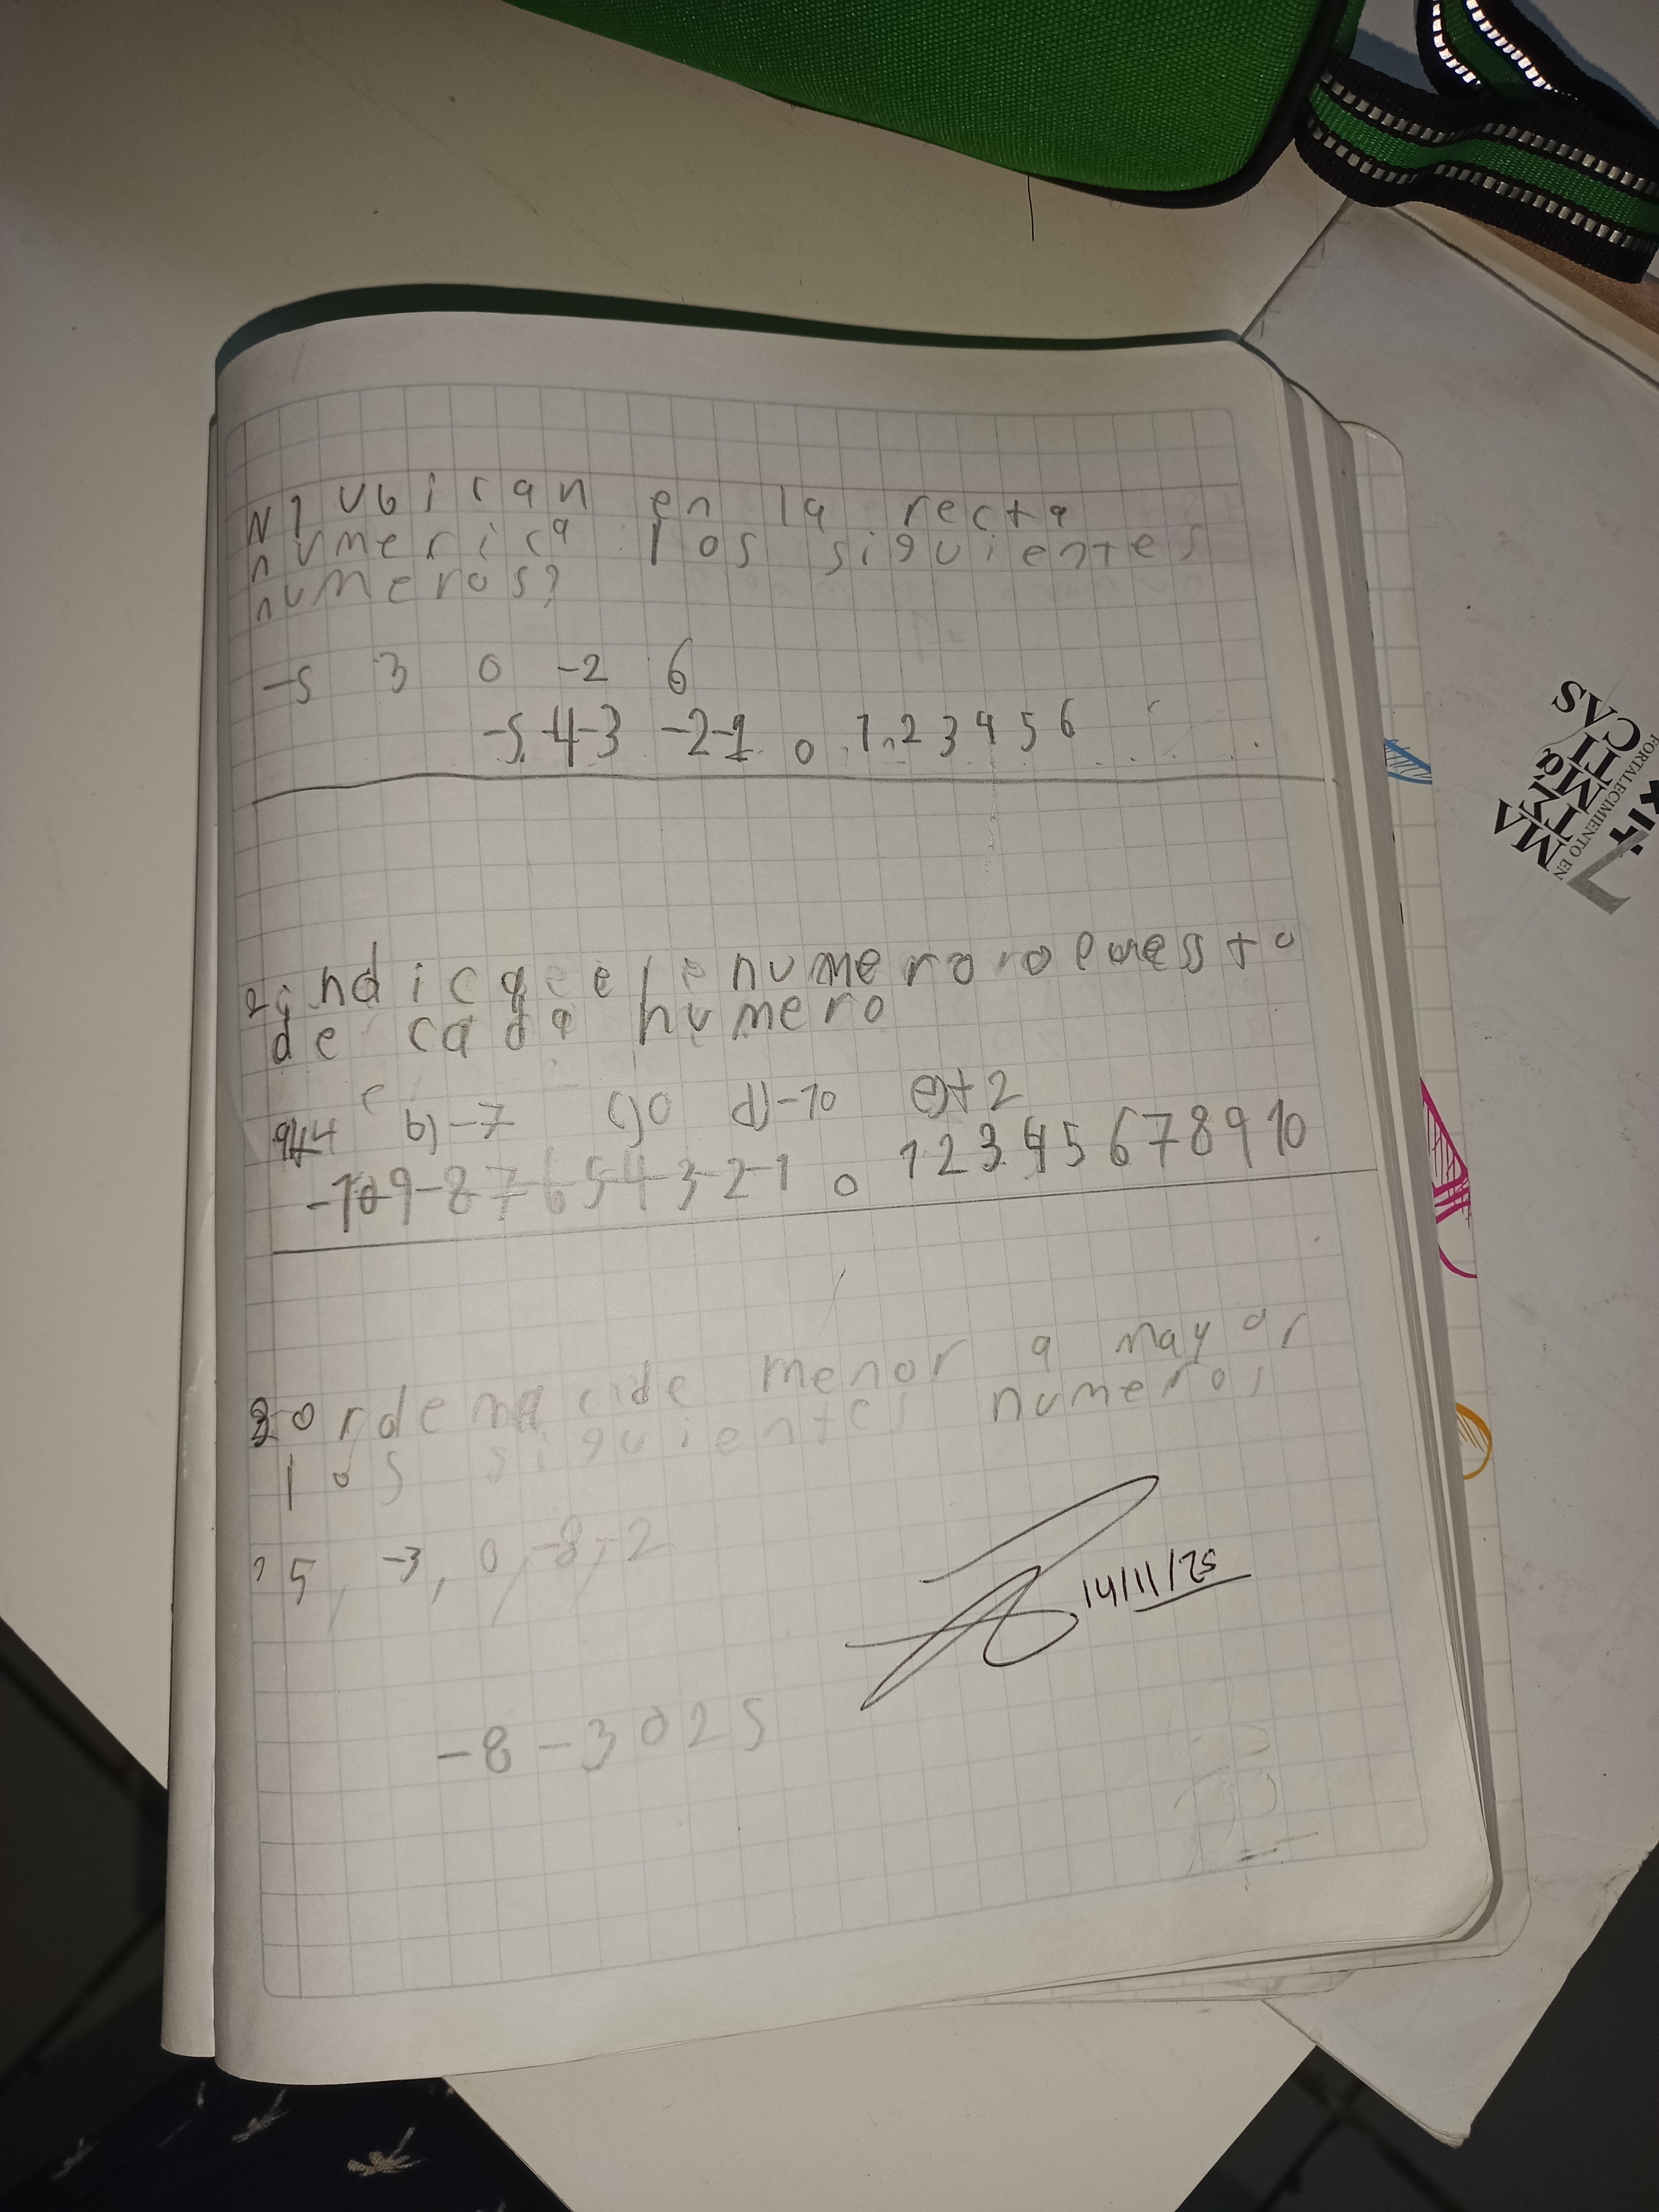 N1 ubican en la recta
numerica los siguientes
numeros?
-5 3 0 -2 6
-5 -4 -3 -2 -1 0 1 2 3 4 5 6
2 indicque el numero
de cada numero
a)+4 b) -7 c) 0 d) -10 e)+2
-10 -9 -8 -7 -6 -5 -4 -3 -2 -1 0 1 2 3 4 5 6 7 8 9 10
3 ordena de menor a mayor
los siguientes numeros
5, -3, 0, -8, 2
14/11/25
-8 -3 0 2 5
MA
TEMÁ
TI
CAS
FORTALECIMIENTO EN
7